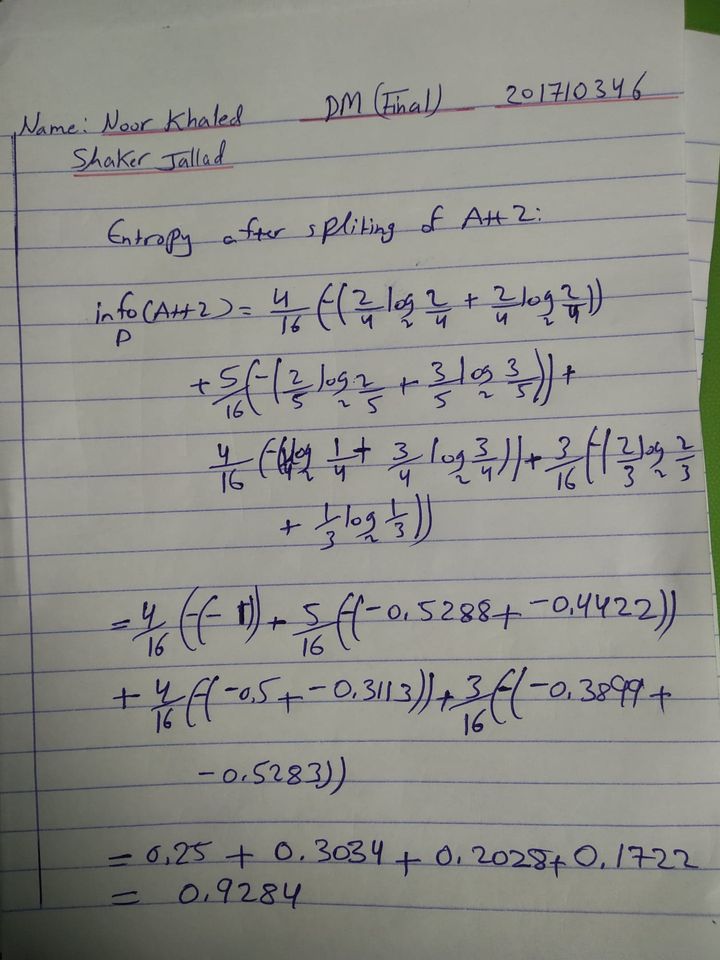 Name: Noor Khaled DM (Final) 201710346
Shaker Jallad
Entropy after spliting of Att 2:
info_D(Att2) = 4/16 (-(2/4 log₂ 2/4 + 2/4 log₂ 2/4))
+ 5/16 (-(2/5 log₂ 2/5 + 3/5 log₂ 3/5)) +
4/16 (-(1/4 log₂ 1/4 + 3/4 log₂ 3/4)) + 3/16 (-(2/3 log₂ 2/3
+ 1/3 log₂ 1/3))
= 4/16 (-(-1)) + 5/16 (-(-0.5288 + -0.4422))
+ 4/16 (-(-0.5 + -0.3113)) + 3/16 (-(-0.3899 +
-0.5283))
= 0.25 + 0.3034 + 0.2028 + 0.1722
= 0.9284